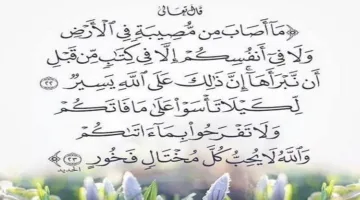 قال تعالى
﴿مَآ أَصَابَ مِن مُّصِيبَةٍ فِي ٱلْأَرْضِ
وَلَا فِىٓ أَنفُسِكُمْ إِلَّا فِى كِتَٰبٍ مِّن قَبْلِ
أَن نَّبْرَأَهَآ إِنَّ ذَٰلِكَ عَلَى ٱللَّهِ يَسِيرٌ ٢٢
لِّكَيْلَا تَأْسَوْا۟ عَلَىٰ مَا فَاتَكُمْ
وَلَا تَفْرَحُوا۟ بِمَآ ءَاتَىٰكُمْ
وَٱللَّهُ لَا يُحِبُّ كُلَّ مُخْتَالٍ فَخُورٍ ٢٣﴾ الحديد